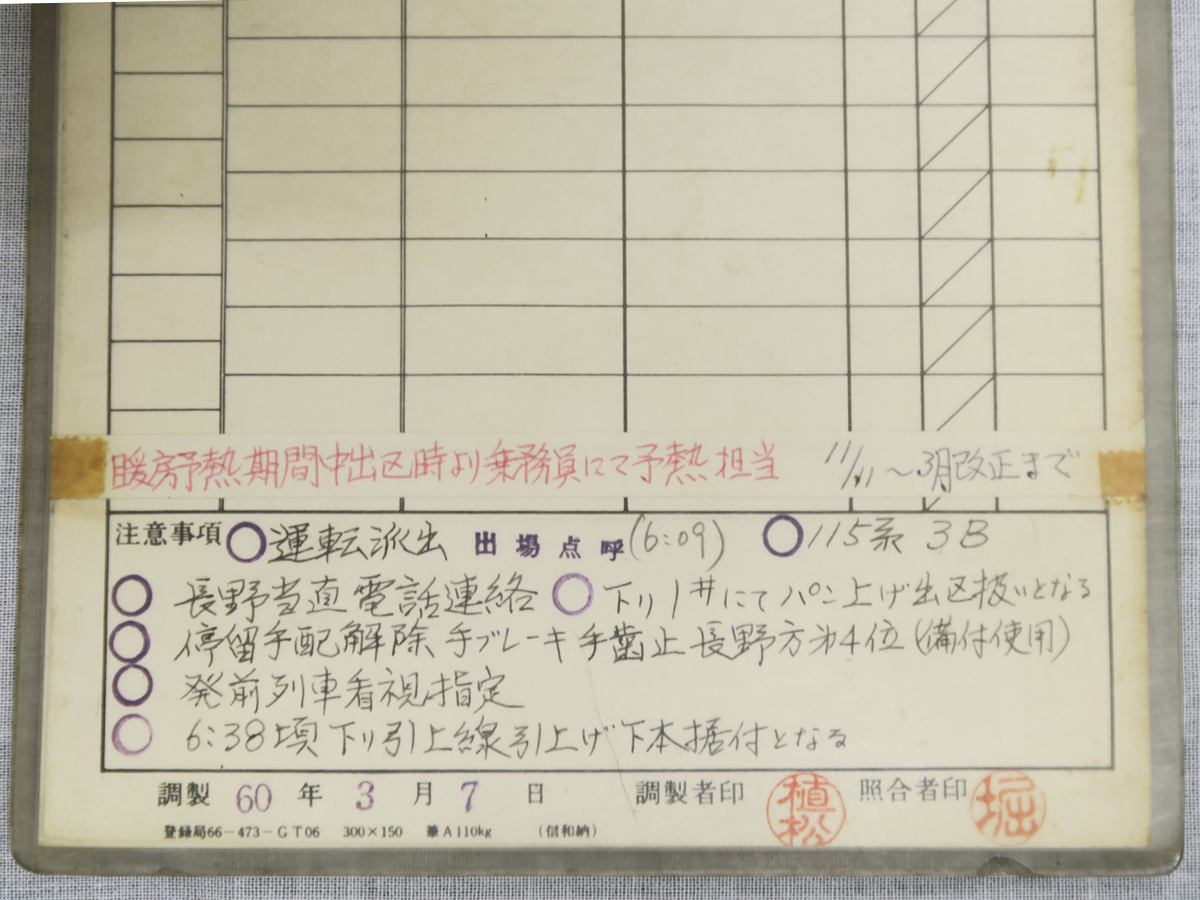 暖房予熱期間中出区時より乗務員にて予熱担当 11/11～3月改正まで
注意事項 ○運転派出 出場点呼(6:09) ○115系 3B
○ 長野当直電話連絡 ○下り1井にてパン上げ出区扱いとなる
○ 停留手配解除 手ブレーキ手歯止長野方第4位(備付使用)
○ 発前列車看視指定
○ 6:38頃下り引上線引上げ下本据付となる
調製 60 年 3 月 7 日 調製者印 植松 照合者印 堀
登録局66-473-GT06 300×150 筆A110kg (信和納)